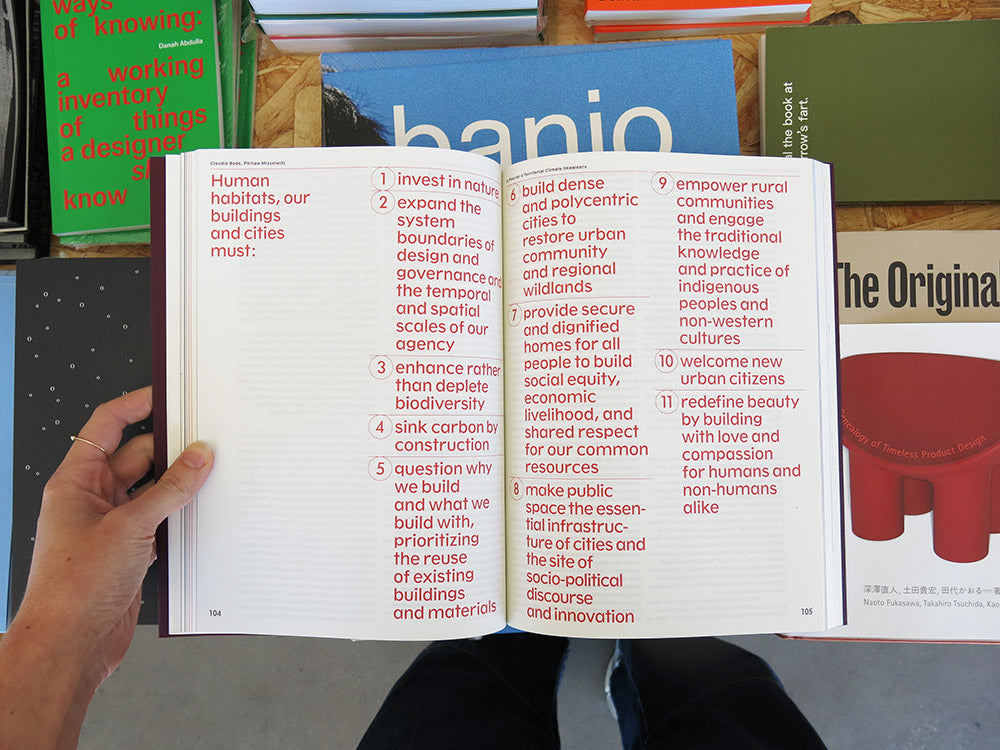 ways
of knowing:
Danah Abdulla
a working
inventory
of things
a designer
know
banjo
al the book at
row's fart.
Claudia Bode, Philipp Misselwitz
Human
habitats, our
buildings
and cities
must:
1 invest in nature
2 expand the
system
boundaries of
design and
governance and
the temporal
and spatial
scales of our
agency
3 enhance rather
than deplete
biodiversity
4 sink carbon by
construction
5 question why
we build
and what we
build with,
prioritizing
the reuse
of existing
buildings
and materials
104
for a Territorial Climate Imaginary
6 build dense
and polycentric
cities to
restore urban
community
and regional
wildlands
7 provide secure
and dignified
homes for all
people to build
social equity,
economic
livelihood, and
shared respect
for our common
resources
8 make public
space the essen-
tial infrastruc-
ture of cities and
the site of
socio-political
discourse
and innovation
9 empower rural
communities
and engage
the traditional
knowledge
and practice of
indigenous
peoples and
non-western
cultures
10 welcome new
urban citizens
11 redefine beauty
by building
with love and
compassion
for humans and
non-humans
alike
105
The Original
Genealogy of Timeless Product Design
深澤直人, 土田貴宏, 田代かおる=著
Naoto Fukasawa, Takahiro Tsuchida, Kao